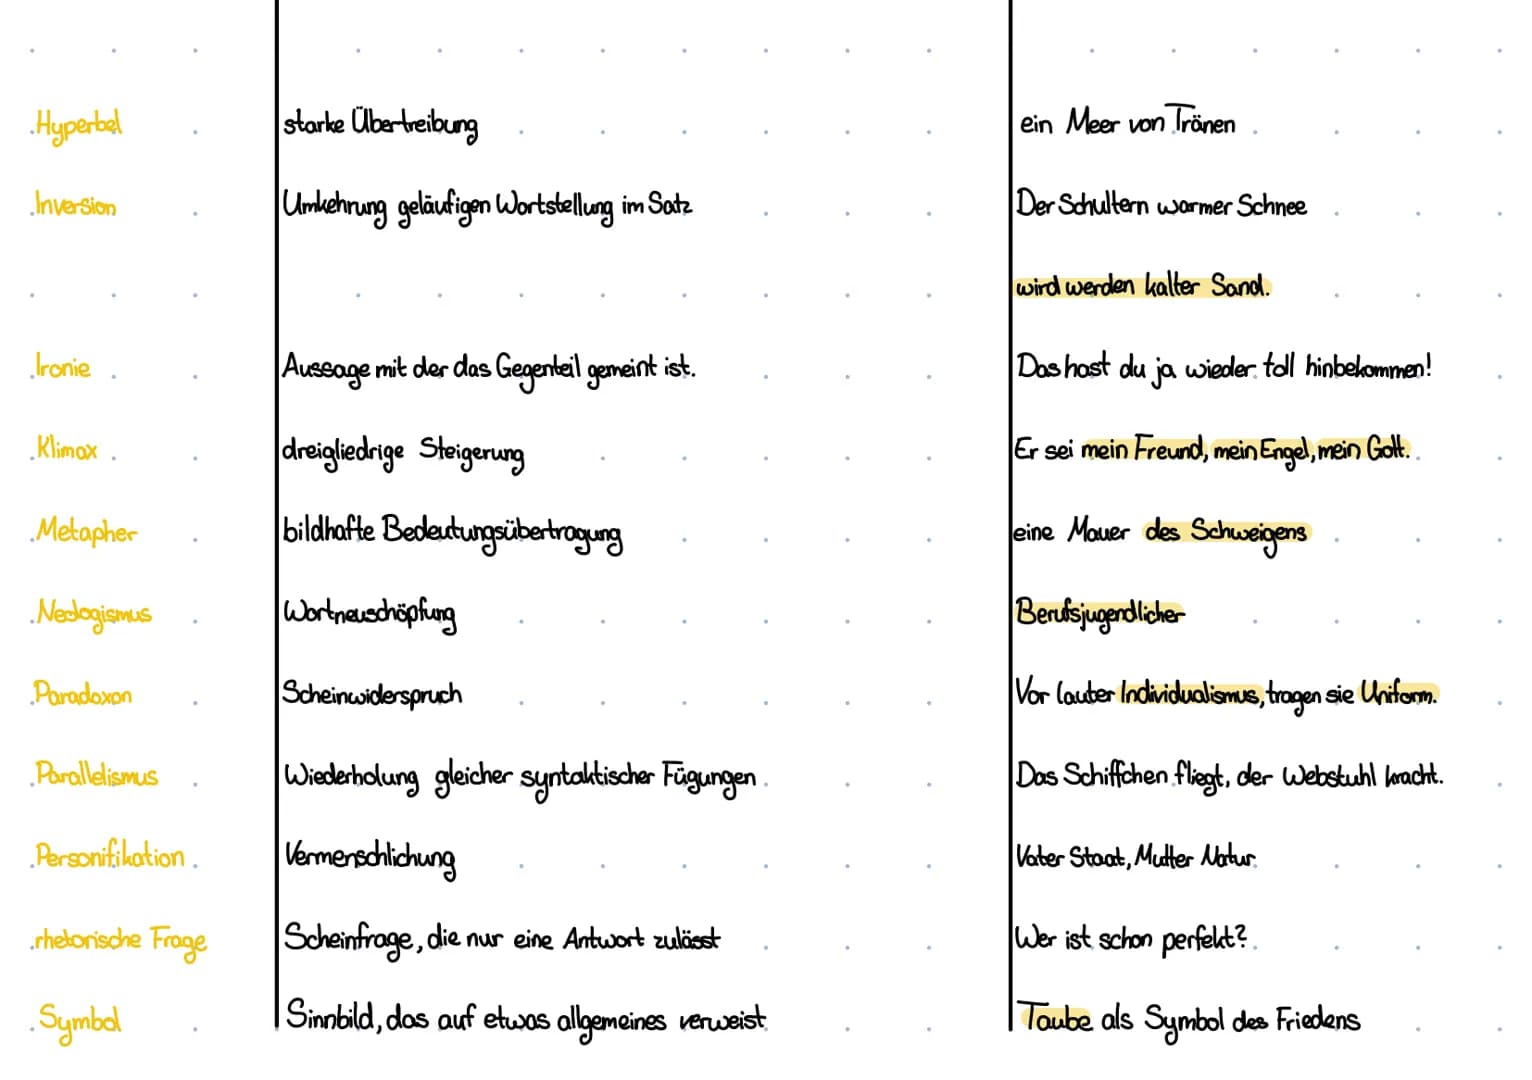 Hyperbel starke Übertreibung ein Meer von Tränen
Inversion Umkehrung geläufigen Wortstellung im Satz Der Schultern warmer Schnee
wird werden kalter Sand.
Ironie Aussage mit der das Gegenteil gemeint ist. Das hast du ja wieder toll hinbekommen!
Klimax dreigliedrige Steigerung Er sei mein Freund, mein Engel, mein Gott.
Metapher bildhafte Bedeutungsübertragung eine Mauer des Schweigens
Neologismus Wortneuschöpfung Berufsjugendlicher
Paradoxon Scheinwiderspruch Vor lauter Individualismus, tragen sie Uniform.
Parallelismus Wiederholung gleicher syntaktischer Fügungen Das Schiffchen fliegt, der Webstuhl kracht.
Personifikation Vermenschlichung Vater Staat, Mutter Natur
rhetorische Frage Scheinfrage, die nur eine Antwort zulässt Wer ist schon perfekt?
Symbol Sinnbild, das auf etwas allgemeines verweist Taube als Symbol des Friedens